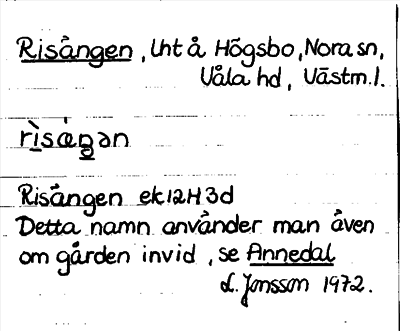 Risången, lht å Högsbo, Nora sn,
Våla hd, Västm.l.
rìsáŋən
Risången ek12H3d
Detta namn använder man även
om gården invid, se Annedal
L. Jonsson 1972.